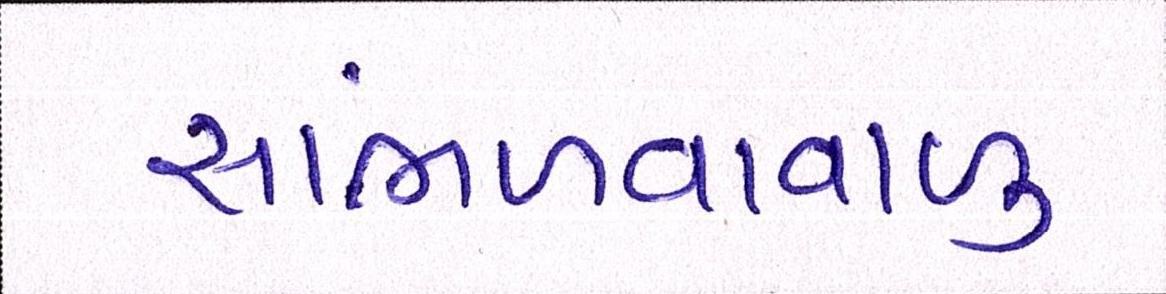 સાંભળવાવાળુ